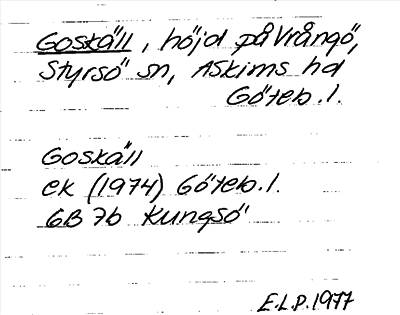 Goskäll, höjd på Vrångö,
Styrsö sn, Askims hd
Göteb.l.
Goskäll
ek (1974) Göteb.l.
6B 7b Kungsö
E.L.P. 1977